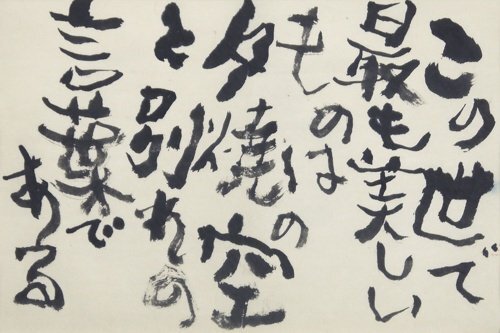 この世で
最も美しい
ものは
夕焼の空
と別れの
言葉で
ある